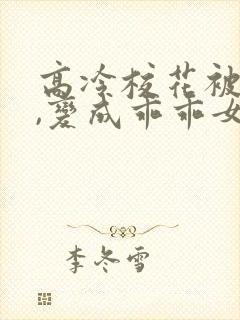 高冷校花被
,变成乖乖女
李冬雪